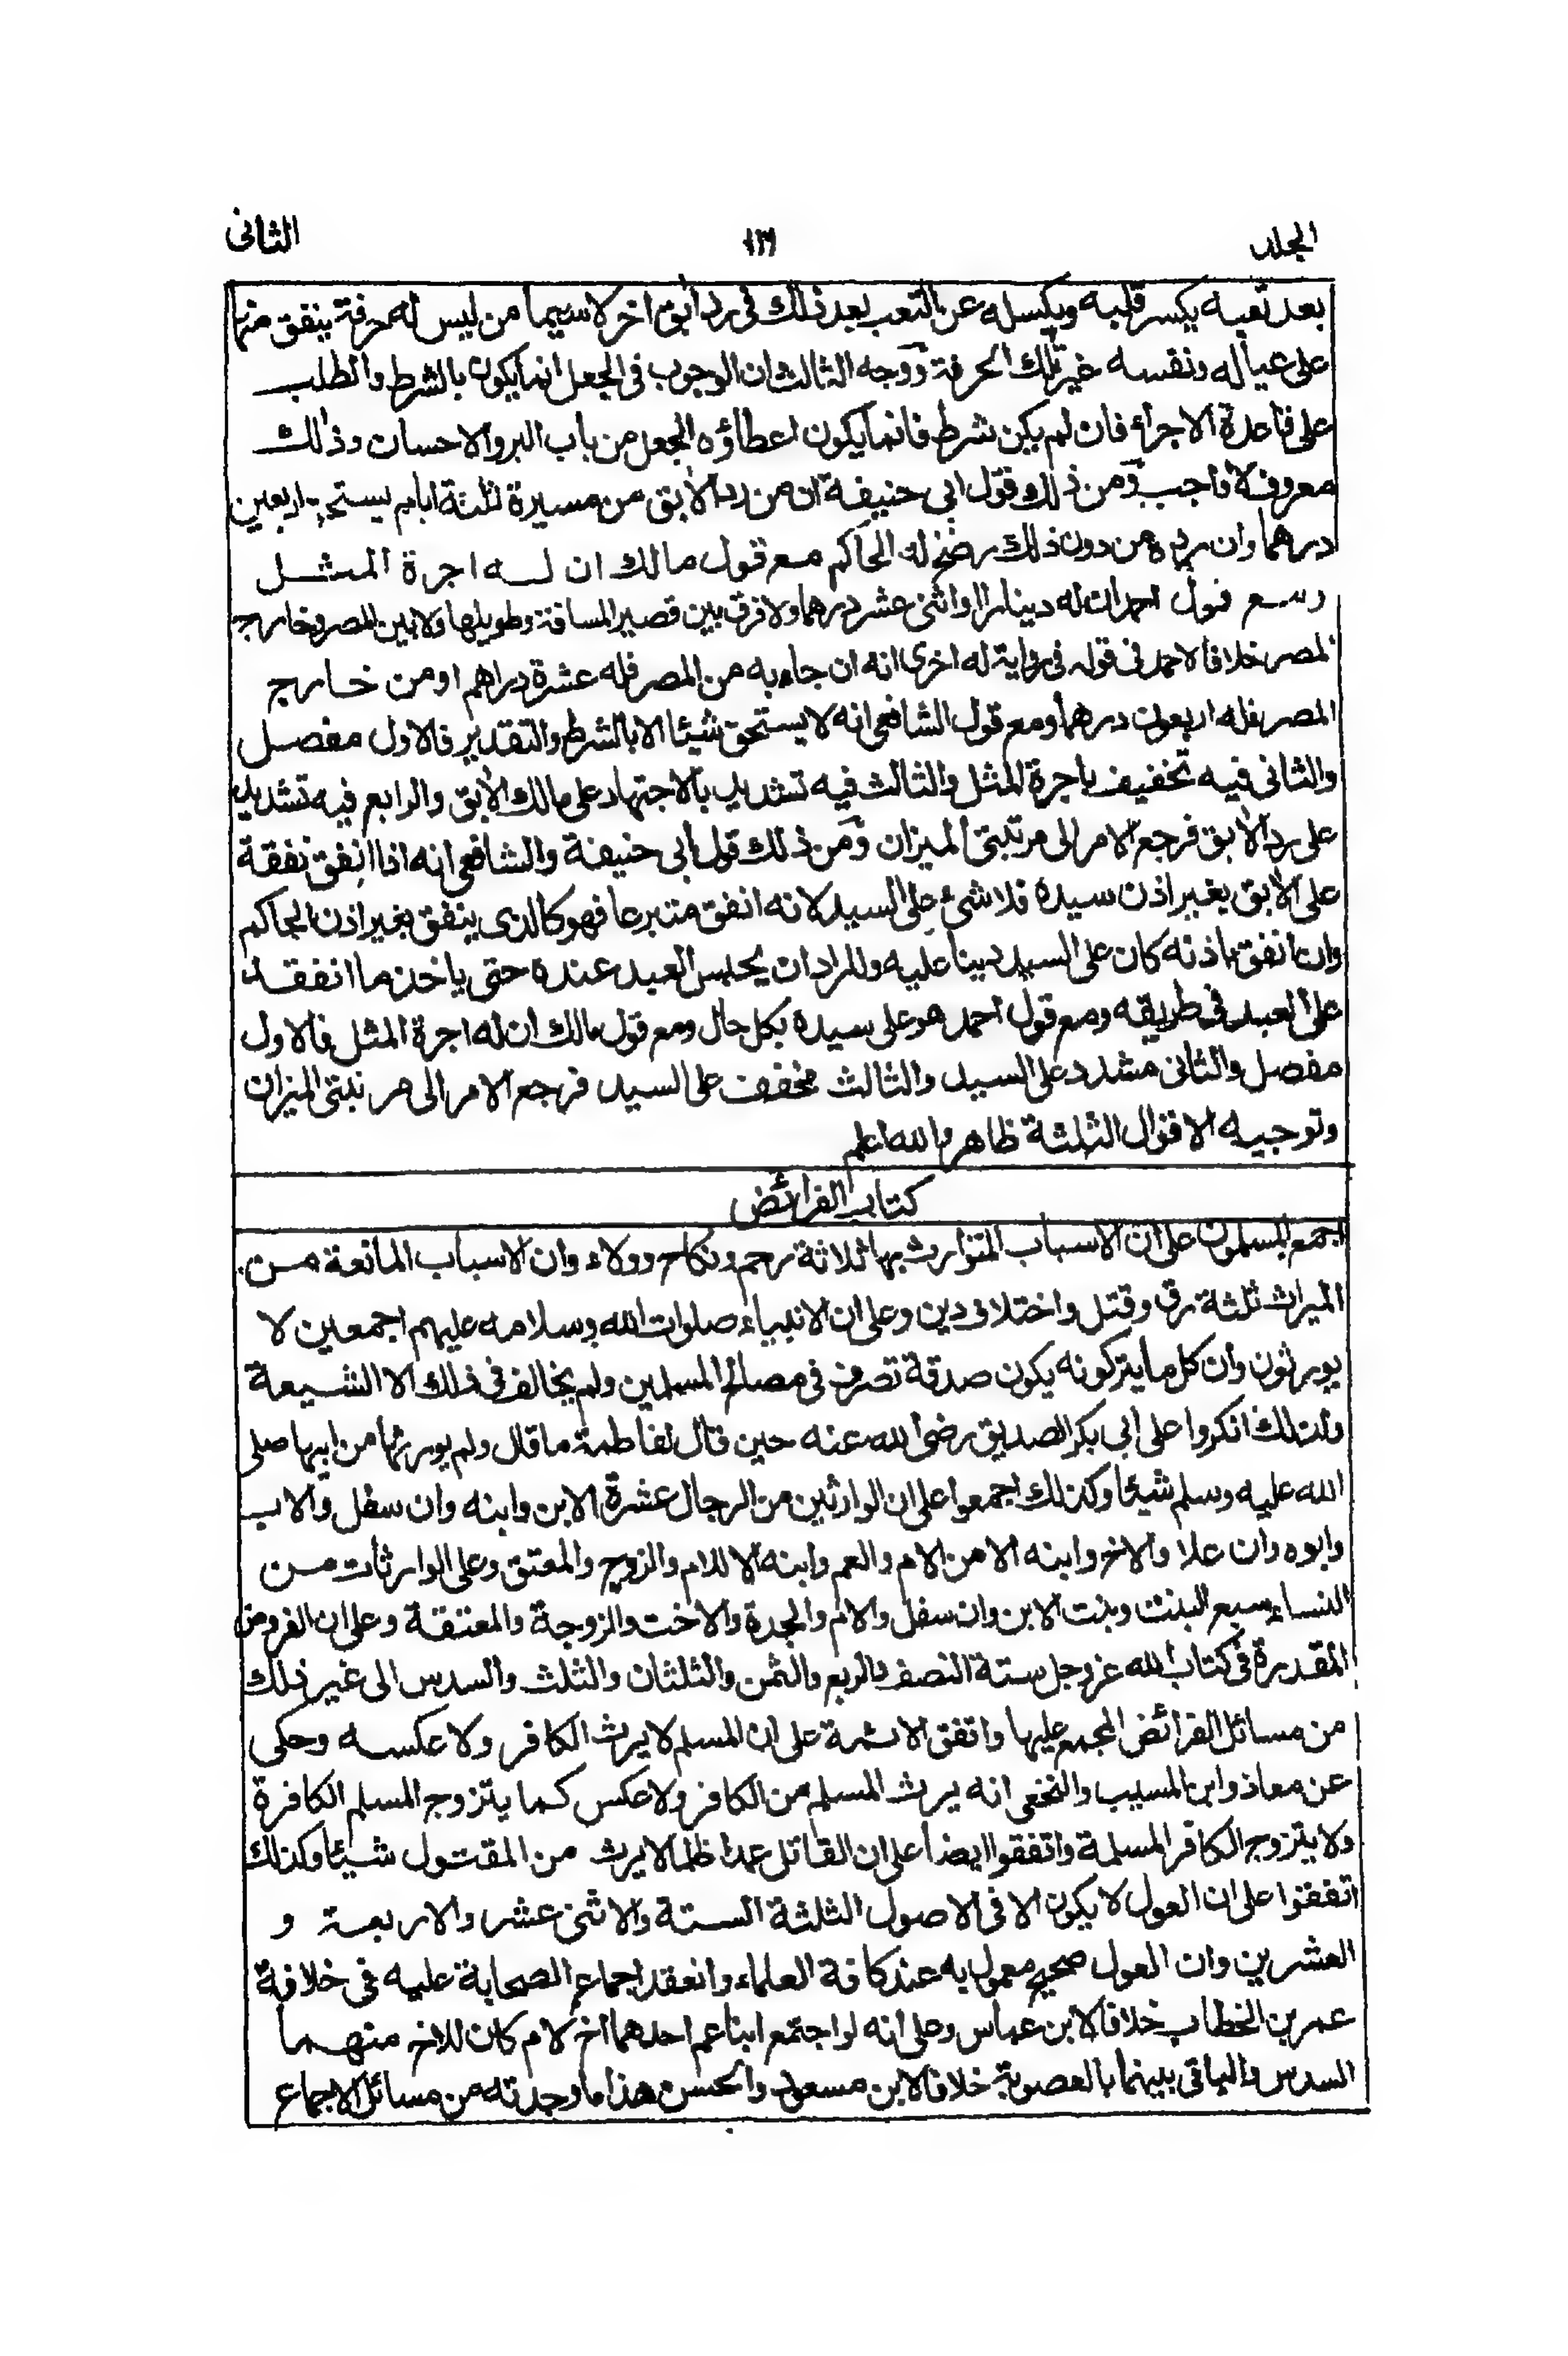 المجلد ١٣١ الثانى
بعد تعبه يكسر قلبه ويكسله عن التعب بعد ذلك فى رد ابق اخر لاسيما من ليس له حرفة ينفق منها
على عياله ونفسه غير تلك الحرفة ووجه الثالث ان الوجوب فى الجعل انما يكون بالشرط والطلب
على قاعدة الاجراء فان لم يكن شرط فانما يكون اعطاؤه الجعل من باب البر والاحسان وذلك
معروف لا واجب ومن ذلك قول ابى حنيفة ان من رد الابق من مسيرة ثلثة ايام يستحق اربعين
درهما وان رده من دون ذلك يرضخ له الحاكم مع قول مالك ان له اجرة المثل
ومع قول احمد ان له دينارا او اثنى عشر درهما ولا فرق بين قصير المسافة وطويلها ولا بين المصر وخارج
المصر خلافا لاحمد فى قوله فى رواية له اخرى انه ان جاء به من المصر فله عشرة دراهم او من خارج
المصر فله اربعون درهما ومع قول الشافعى انه لا يستحق شيئا الا بالشرط والتقدير فالاول مفصل
والثانى فيه تخفيف باجرة المثل والثالث فيه تشديد بالاجتهاد على مالك الابق والرابع فيه تشديد
على رد الابق فرجع الامر الى مرتبتى الميزان ومن ذلك قول ابى حنيفة والشافعى انه اذا انفق نفقة
على الابق بغير اذن سيده فلا شئ على السيد لانه انفق متبرعا فهو كالذى ينفق بغير اذن الحاكم
وان انفق باذنه كان على السيد دينا عليه وللراد ان يحبس العبد عنده حتى ياخذ ما انفقه
على العبد فى طريقه ومع قول احمد هو على سيده بكل حال ومع قول مالك ان له اجرة المثل فالاول
مفصل والثانى مشدد على السيد والثالث مخفف على السيد فرجع الامر الى مرتبتى الميزان
وتوجيه الاقوال الثلثة ظاهر والله اعلم
كتاب الفرائض
اجمع المسلمون على ان الاسباب المتوارث بها ثلاثة رحم ونكاح وولاء وان الاسباب المانعة من
الميراث ثلثة رق وقتل واختلاف دين وعلى ان الانبياء صلوات الله وسلامه عليهم اجمعين لا
يورثون وان كل ما يتركونه يكون صدقة تصرف فى مصالح المسلمين ولم يخالف فى ذلك الا الشيعة
ولذلك انكروا على ابى بكر الصديق رضى الله عنه حين قال لفاطمة ما قال ولم يورثها من ابيها صلى
الله عليه وسلم شيئا وكذلك اجمعوا على ان الوارثين من الرجال عشرة الابن وابنه وان سفل والاب
وابوه وان علا والاخ وابنه الا من الام والعم وابنه الا للام والزوج والمعتق وعلى الوارثات من
النساء سبع البنت وبنت الابن وان سفل والام والجدة والاخت والزوجة والمعتقة وعلى ان الفروض
المقدرة فى كتاب الله عز وجل ستة النصف والربع والثمن والثلثان والثلث والسدس الى غير ذلك
من مسائل الفرائض المجمع عليها واتفق الائمة على ان المسلم لا يرث الكافر ولا عكسه وحكى
عن معاذ وابن المسيب والنخعى انه يرث المسلم من الكافر ولا عكس كما يتزوج المسلم الكافرة
ولا يتزوج الكافر المسلمة واتفقوا ايضا على ان القاتل عمدا ظلما لا يرث من المقتول شيئا وكذلك
اتفقوا على ان العول لا يكون الا فى الاصول الثلثة الستة والاثنى عشر والاربعة و
العشرين وان العول صحيح معمول به عند كافة العلماء وانعقد اجماع الصحابة عليه فى خلافة
عمر بن الخطاب خلافا لابن عباس وعلى انه لو اجتمع ابنا عم احدهما اخ لام كان للاخ منهما
السدس والباقى بينهما بالعصوبة خلافا لابن مسعود والحسن هذا ما وجدته من مسائل الاجماع